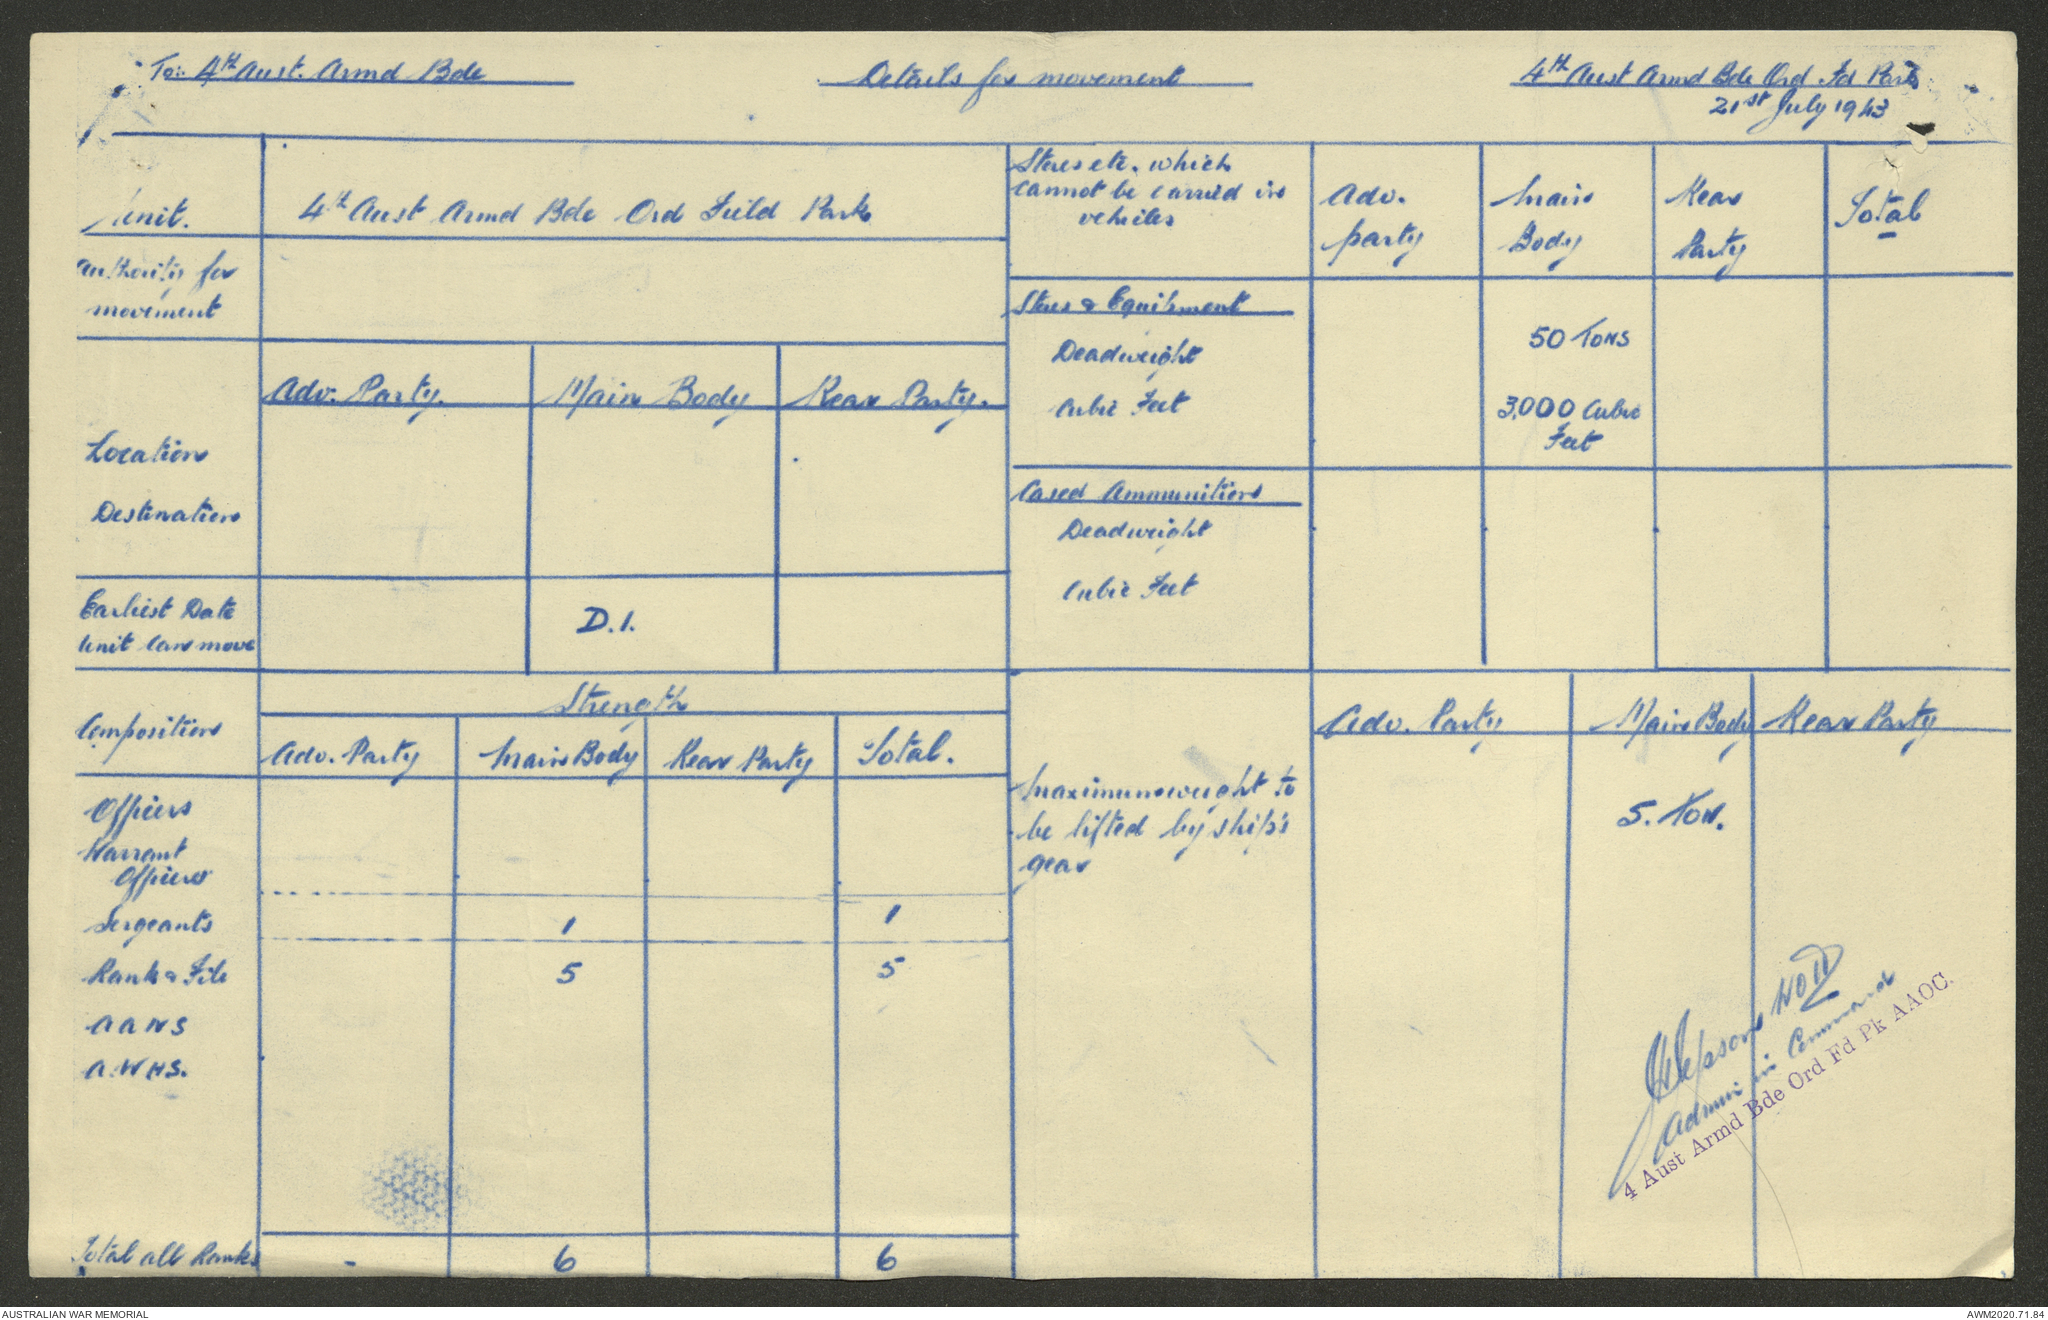 To:- 4th Aust. Armd Bde
Details for movement
4th Aust Armd Bde Ord Fd Park
21st July 1943
Unit.
4th Aust Armd Bde Ord Field Park
Authority for
movement
Adv. Party.
Main Body
Rear Party.
Location
Destination
Earliest Date
Unit can move
D.1.
Composition
Strength
Adv. Party
Main Body
Rear Party
Total.
Officers
Warrant
Officers
Sergeants
1
1
Rank & File
5
5
A A N S
A.W A S.
Total all Ranks
-
6
6
Stores etc. which
cannot be carried in
vehicles
Adv.
party
Main
Body
Rear
Party
Total
Stores & Equipment
Deadweight
50 Tons
Cubic Feet
3,000 Cubic
Feet
Cased Ammunition
Deadweight
Cubic Feet
Adv. Party
Main Body
Rear Party
Maximum weight to
be lifted by ship's
gear
5. Ton.
Jepson WO II
Admin in Command
4 Aust Armd Bde Ord Fd Pk AAOC.
AUSTRALIAN WAR MEMORIAL
AWM2020.71.84